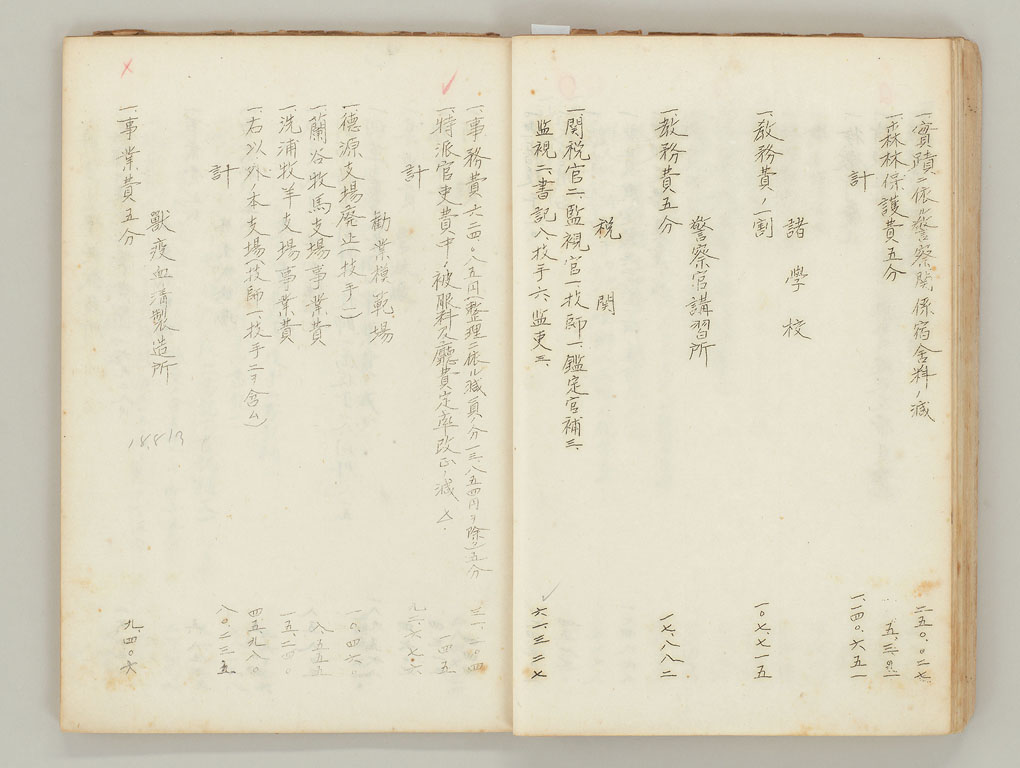 一、實蹟ニ依ル警察関係宿舎料ノ減 二五〇、〇二七
一、森林保護費五分 五、三〇一
計 一、一四〇、六五一
諸學校
一、敎務費ノ一割 一〇七、七一五
警察官講習所
一、敎務費五分 一七、八八二
税関
一、関税官二、監視官一、技師一、鑑定官補三、
監視二、書記八、技手六、監吏三、 六一、三二七
一、事務費六二四、〇八五円(整理ニ依ル減員ノ分一三、八五四円ヲ除ク)五分
一、特派官吏費中、被服料及廳費定率改正ノ減 一四五
計
勸業模範場
一、德源支場廃止(技手一) 一〇、四六〇
一、蘭谷牧馬支場事業費 八、五五五
一、洗浦牧羊支場事業費 一五、二四〇
一、右以外ノ本支場(技師一、技手二ヲ含ム) 四五、九八〇
計 八〇、二三五
獸疫血清製造所
一、事業費五分 九、四〇六